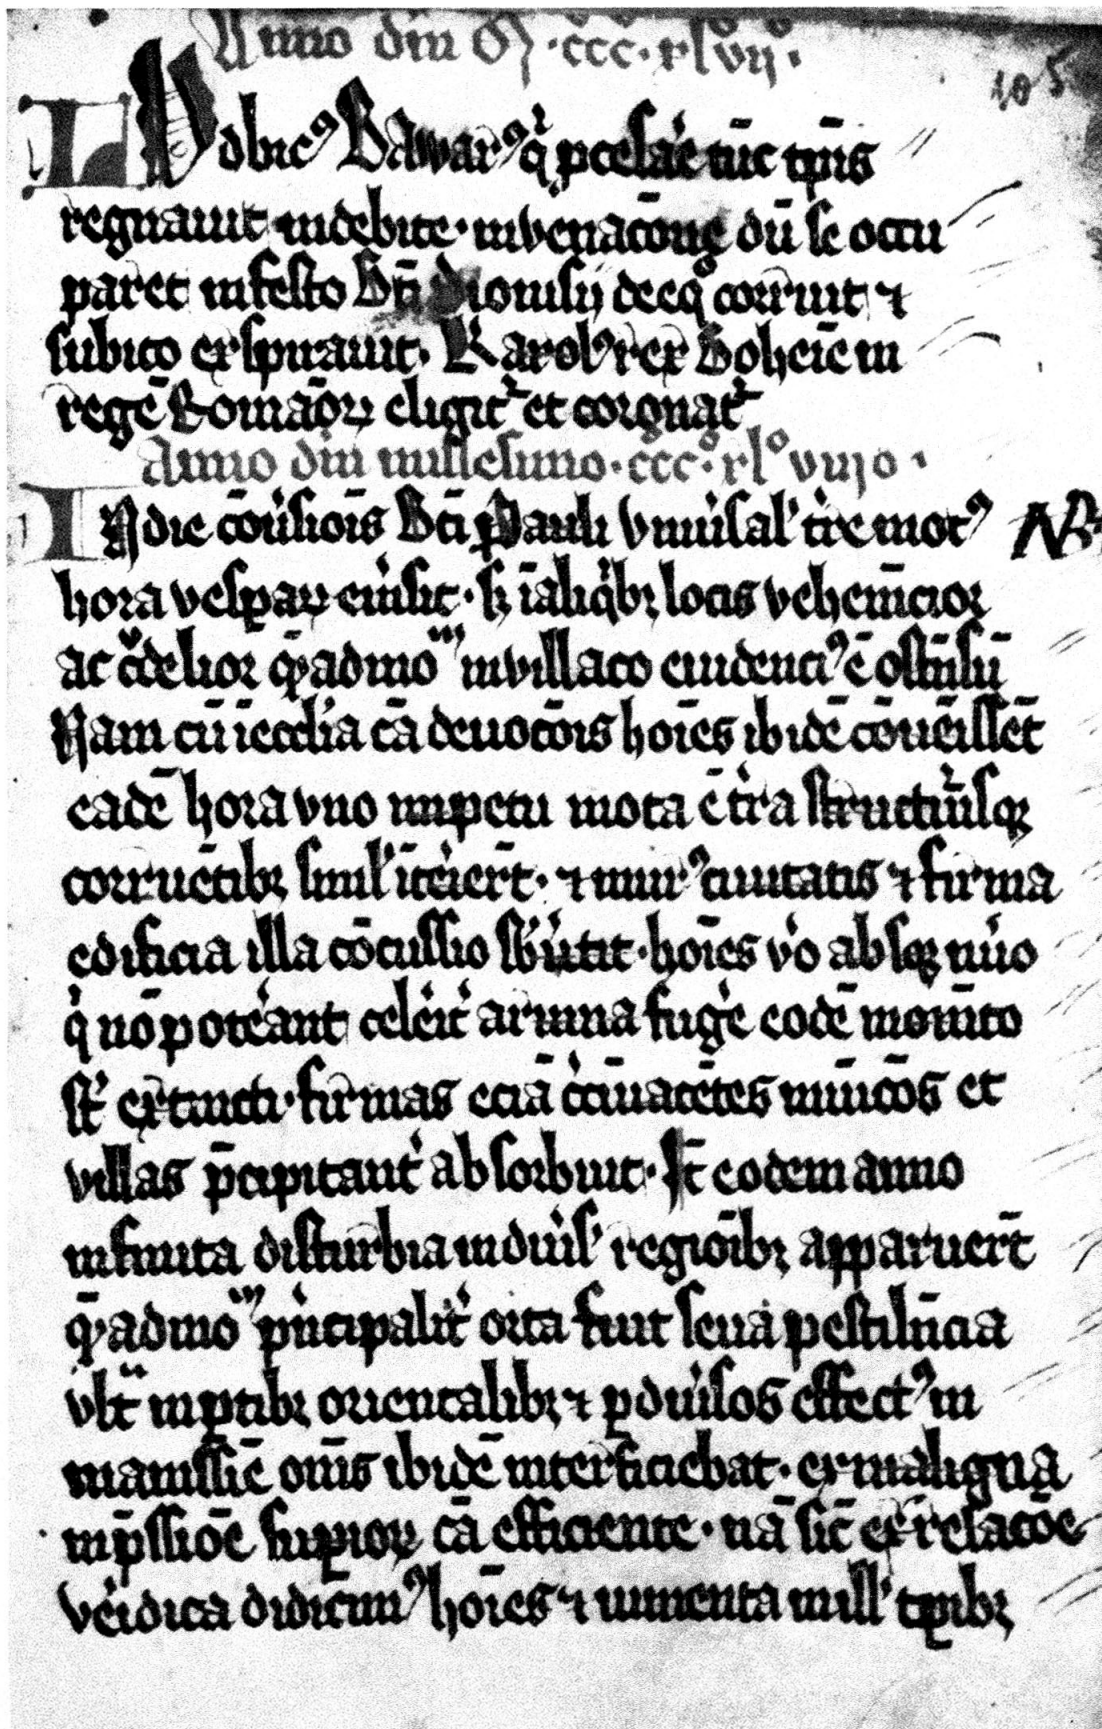 Anno dn̄i M·ccc·xlvijº·
105
LUdbicꝰ Bawarꝰ qͥ p̱cesꝰ tūc tp̄is
regnauit indebite· in venacōne dū se occu
paret in festo Bt̄i Dionisij de eqͦ corruit ⁊
subito exspirauit· Karolꝰ rex Bohēie in
regē Romāoꝝ eligit᷑ et coronat᷑
Anno dn̄i millesimo·cccº·xlº viijo·
IN die cōu̓siōis Bt̄i Pauli vniu̓sal̓ t̓re motꝰ
NB
hora vesꝑaꝝ eiu̓sit· s̄ꝫ ī aliq̓bꝫ locis vehem̄cior
ac c̓delior q̄ꝫadmoͫ in villaco euidenciꝰ ē ostn̄sū
Nam cū ī eccl̄ia cā deuocōis hoīes ibidē cōuēissēt
eadē hora vno impetu mota ē t̓ra structur̓isqꝫ
corruētibꝫ simul̓ īt̓iert̄· ⁊ murꝰ ciuitatis ⁊ firma
edificia illa cōcussio sb̓u̓tit· hoīes v̓o absqꝫ nu̓o
q̓ nō pot̓ant cel̓it̓ a ruina fug̓e eodē mom̄to
st̄ extincti· firmas eciā c̓cūiacētes mūicōs et
villas p̄cipitant̓ absorbuit· It̄ eodem anno
infinita disturbia in diu̓s̓ regiōibꝫ apparuert̄
q̄ꝫadmoͫ p̓ncipalit̓ orta fuit seua pestiln̄cia
vlt̄ͣ in ꝑtibꝫ orientalibꝫ ⁊ ꝑ diu̓sos effectꝰ in
maniss̄iē om̄s ibidē interficiebat· ex maligna
imp̄ssiōe supioꝝ cā efficiente· nā sic̄ ex relacōe
v̓eidica didicimꝰ hoīes ⁊ iumenta mill̓ tp̄ibꝫ